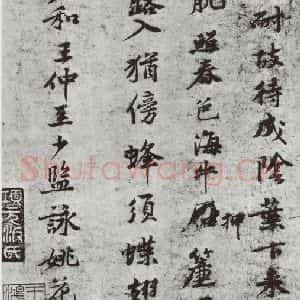 耐故待成陰葉下来
肌照春色海牛壓押簾
路入猶傍蜂須蝶翅
和王仲至少監詠姚花
ShufaWang.Cn